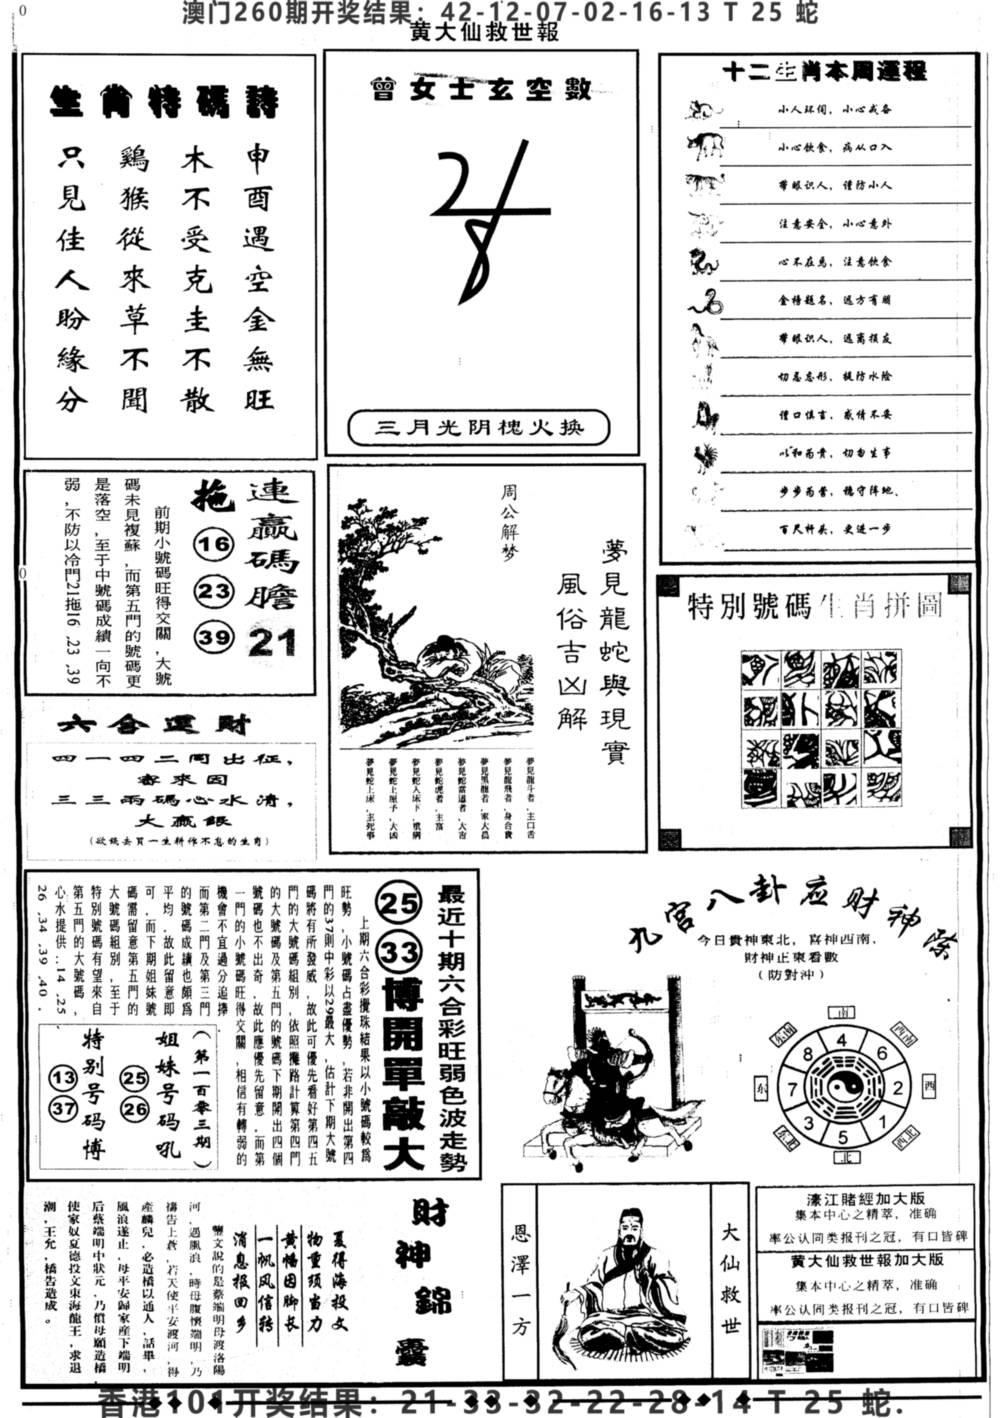 澳门260期开奖结果：42-12-07-02-16-13 T 25 蛇
黄大仙救世報
生肖特碼詩
申酉遇空金無旺
木不受克圭不散
鷄猴從來草不聞
只見佳人盼緣分
曾女士玄空數
三月光阴槐火换
十二生肖本周運程
小人环伺，小心戒备
小心饮食，病从口入
带眼识人，谨防小人
注意安全，小心意外
心不在焉，注意饮食
金榜题名，远方有朋
带眼识人，远离损友
切忌忘形，提防水险
谨口慎言，感情不妥
以和为贵，切勿生事
步步为营，稳守阵地、
百尺杆头，更进一步
連贏碼膽 21
拖 16 23 39
前期小號碼旺得交關，大號
碼未見複蘇，而第五門的號碼更
是落空，至于中號碼成績一向不
弱，不防以冷門21拖16，23，39
周公解梦
夢見龍蛇與現實
風俗吉凶解
夢見龍斗者，主口舌
夢見龍飛者，身合貴
夢見黑龍者，家大昌
夢見蛇當道者，大吉
夢見蛇虎者，主富
夢見蛇入床下，重病
夢見蛇上屋子，大凶
夢見蛇上床，主死事
特別號碼生肖拼圖
六合運財
四一四二同出征，
喜來因
三三兩碼心水清，
大贏錢
(欲钱去買一生耕作不息的生肖)
最近十期六合彩旺弱色波走勢
25 33 博開單敲大
上期六合彩攪珠結果以小號碼較為
旺勢，小號碼占盡優勢，若非開出第四
門的37則中彩以29最大，估計下期大號
碼將有所發威，故此可優先看好第四五
門的大號碼組別，依照攤路計算第四門
的大號碼及第五門的號碼下期開出四個
號碼也不出奇，故此應優先留意，而第
一門的小號碼旺得交關，相信有轉弱的
機會不宜過分追捧
而第二門及第三門
的號碼成績也頗為
平均，故此留意即
可，而下期姐妹號
碼需留意第五門的
大號碼組別，至于
特別號碼有望來自
第五門的大號碼，
心水提供：.14 .25 .
26 .34 .39 .40 .
(第一百零三期)
姐妹号码吼
25 26
特别号码博
13 37
九宮八卦应财神除
今日貴神東北，喜神西南，
財神正東看數
(防對沖)
南
东南 西南
东 西
东北 西北
北
4 6 2 7 1 5 3 7 8
財神錦囊
夏得海投文
物重頭當力
黄幡因脚长
一帆风信转
消息报回乡
蘴文說的是蔡端明母渡洛陽
河，遇風浪，時母腹懷端明，乃
禱告上蒼，若天使平安渡河，得
產麟兒，必造橋以通人，話畢，
風浪遂止，母平安歸家産下端明
后蔡端明中狀元，乃償母願造橋，
使家奴夏德投文東海龍王，求退
潮，王允，橋告造成。
恩澤一方
大仙救世
濠江賭經加大版
集本中心之精萃，准确
率公认同类报刊之冠，有口皆碑
黄大仙救世報加大版
集本中心之精萃，准确
率公认同类报刊之冠，有口皆碑
香港101开奖结果：21-33-32-22-28-14 T 25 蛇.